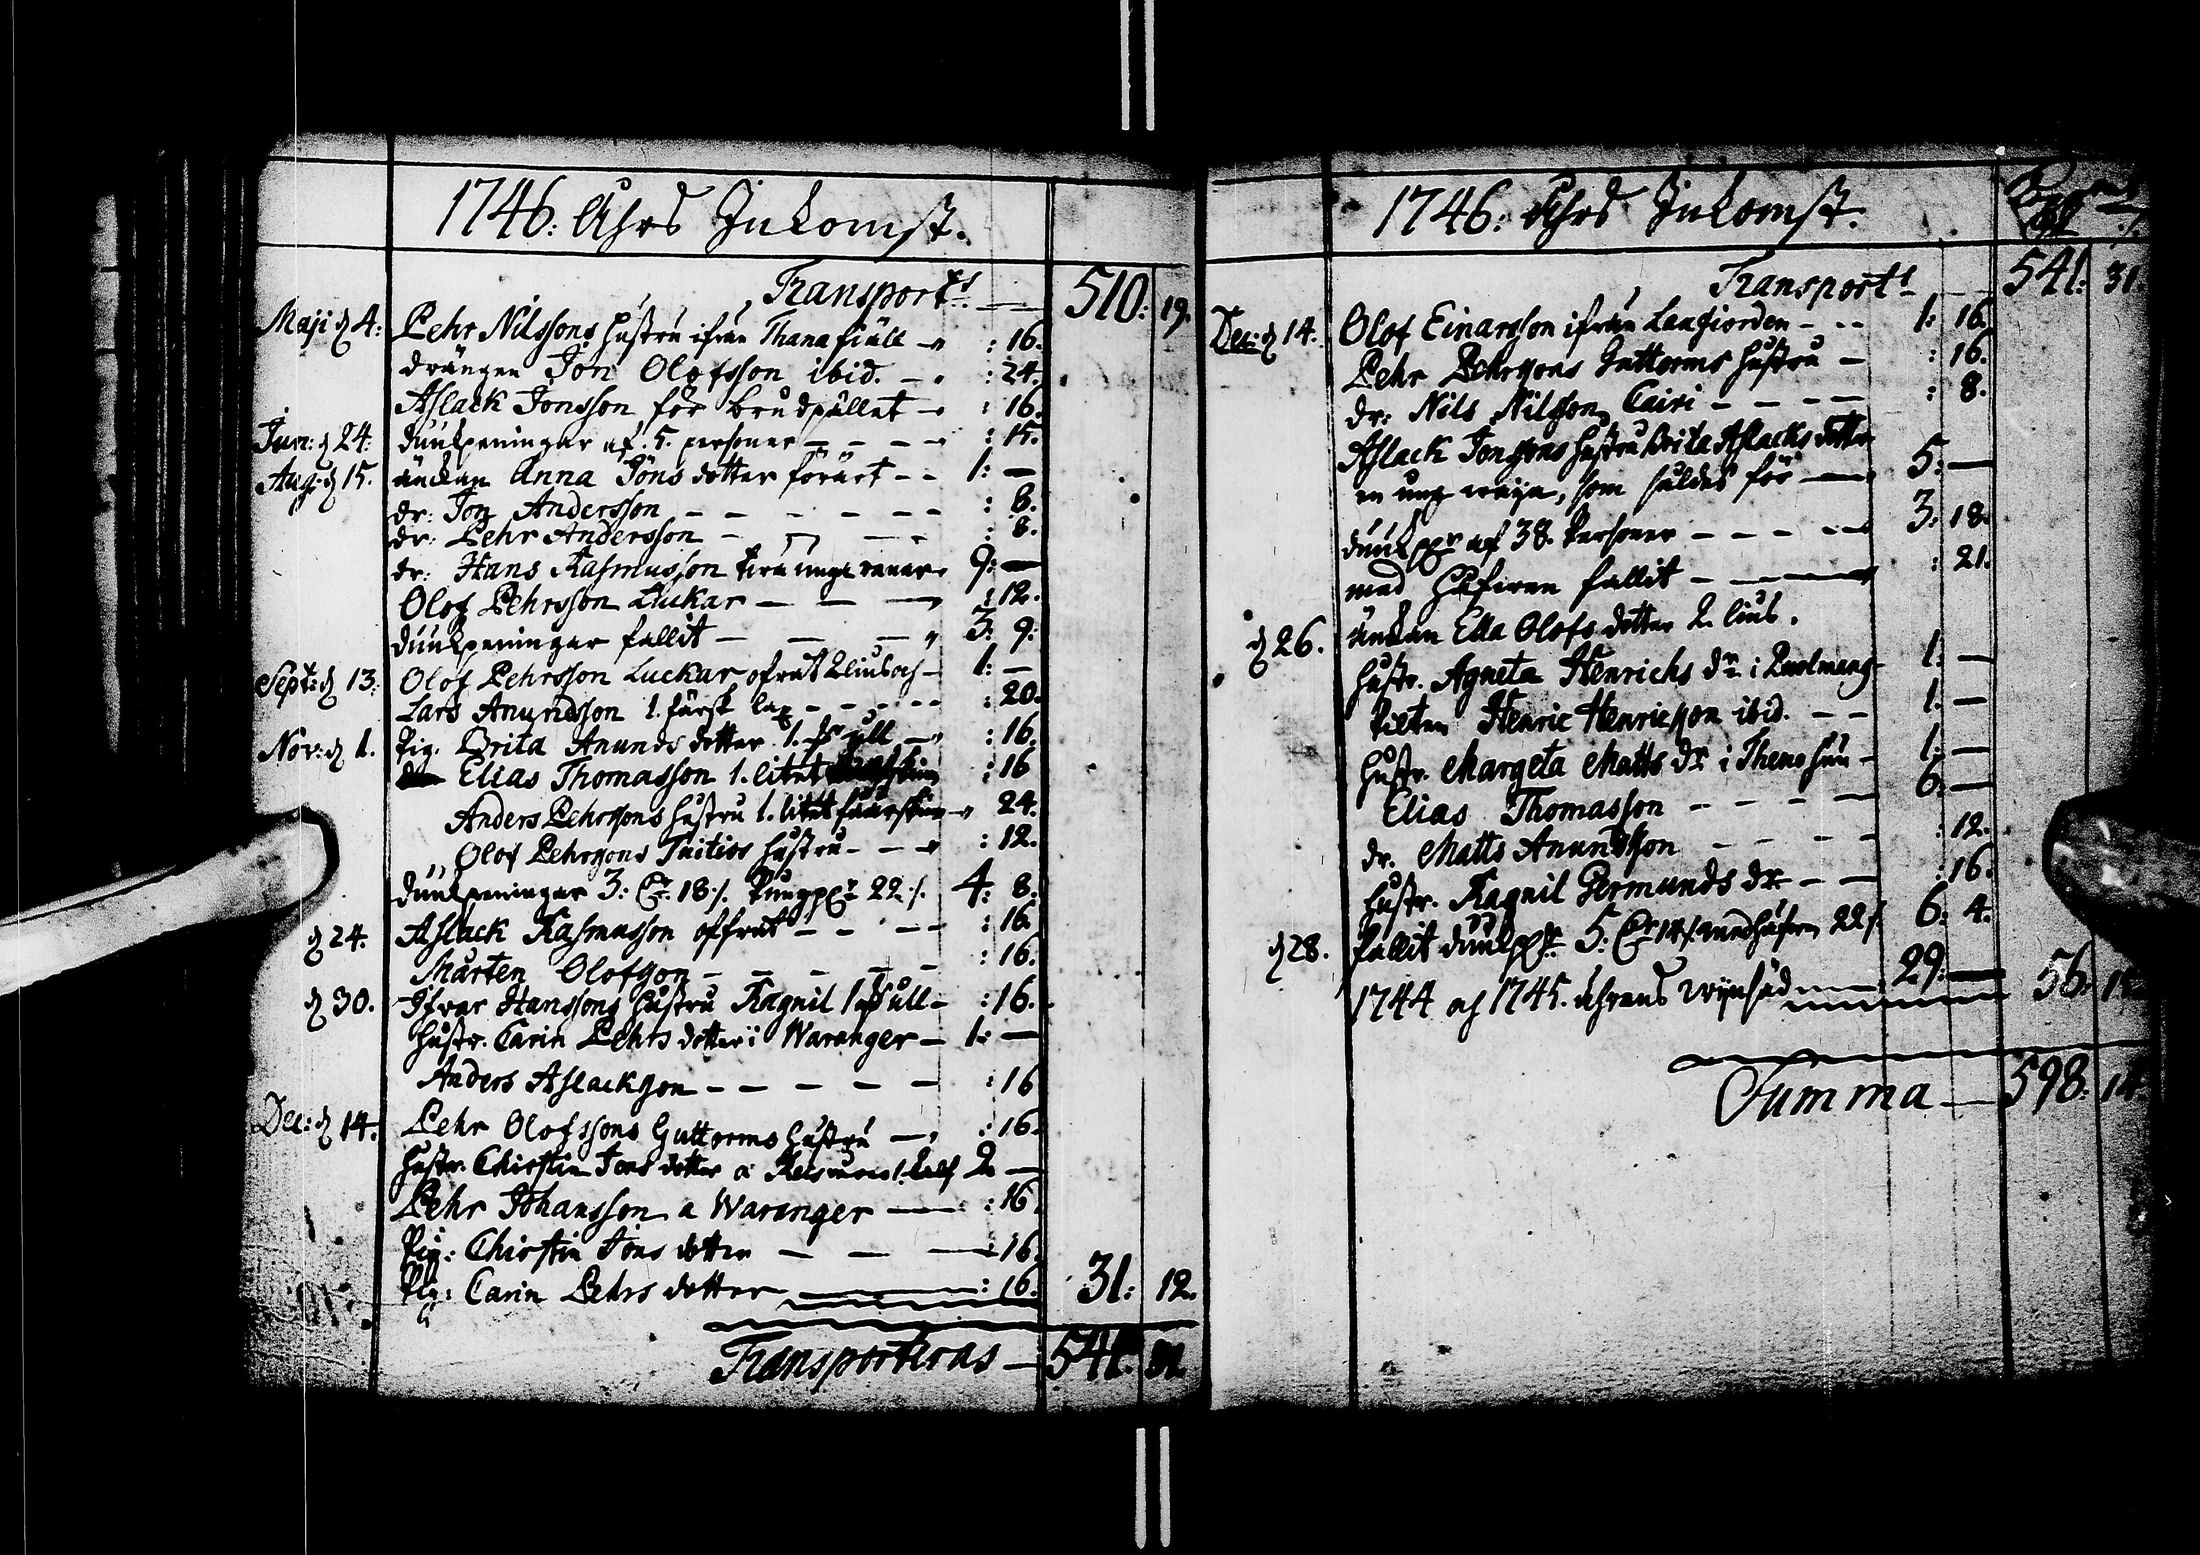 1746. Åhrs Inkomst.
Transport:t — 510: 19.
Maji d 4: Pehr Nilssons hustru ifrån Thana fiäll — : 16.
drängen Jon Olofsson ibid. — : 24.
Aslack Jonsson för brudpället — : 16.
Jun: d 24. duukpeningar af 5. personer — : 15.
Aug: d 15. änckan Anna Jöns dotter förärt — 1: —
dr: Jon Andersson — : 8.
dr: Pehr Andersson — : 8.
dr: Hans Rasmusson unga 9: —
Olof Pehrsson Luckar — : 12.
duukpeningar fallit — 3: 9:
Sept: d 13: Olof Pehrsson Luckar ofrat 2 lius och — 1: —
Lars Anundsson 1. färsk lax — : 20.
Nov: d 1. Pig. Brita Anunds dotter 1. ull — : 16.
Elias Thomasson 1. litet : 16
Anders Pehrssons hustru 1. litet fåårskin — 24.
Olof Pehrssons hustru — : 12.
duukpeningar 3: 18 ⁒. 22 ⁒. 4: 8.
d 24. Aslack Rasmusson offrat — : 16.
Mårten Olofsson — : 16.
d 30. Ifvar Hanssons hustru Ragnil 1 ull — : 16.
hustr. Carin Pehrs dotter i Waranger — 1: —
Anders Aslacksson — : 16
Dec: d 14. Pehr Olofssons Guttorms hustru — : 16.
hustr. Chirstin Jons dotter a 1. kalf 2 —
Pehr Johansson a Waranger — : 16
Pig: Chirstin Jons dotter — : 16.
Pig: Carin Pehrs dotter — : 16. 31: 12.
Transporteras — 541: 31.
1746. Åhrs Inkomst.
Transport:t — 541: 31.
Dec: d 14. Olof Einarsson ifrån Lanfiorden — 1: 16.
Pehr Pehrssons Guttorms hustru — : 16.
dr: Nils Nilsson Cairi — : 8.
Aslack Jonssons hustru Brita Aslacks dotter
en ung waija, som såldes för — 5: —
duuk af 38. Personer — 3: 18.
med håfwen fallit — : 21.
d 26. änckan Ella Olofs dotter 2. lius.
hustr. Agneta Henrichs dr i 1: —
Pilten Henric Henricsson ibid. — 1. —
hustr. Margeta Matts dr i — 1: —
Elias Thomasson — 6: —
dr. Matts Anundsson — : 12.
hustr. Ragnil Germunds dr — : 16.
d 28. fallit duuk 5: 14 ⁒. med håfwen 22 ⁒. 6: 4.
1744 och 1745. åhrens wijnsäd — 29: — 56.
Summa — 598: 14.